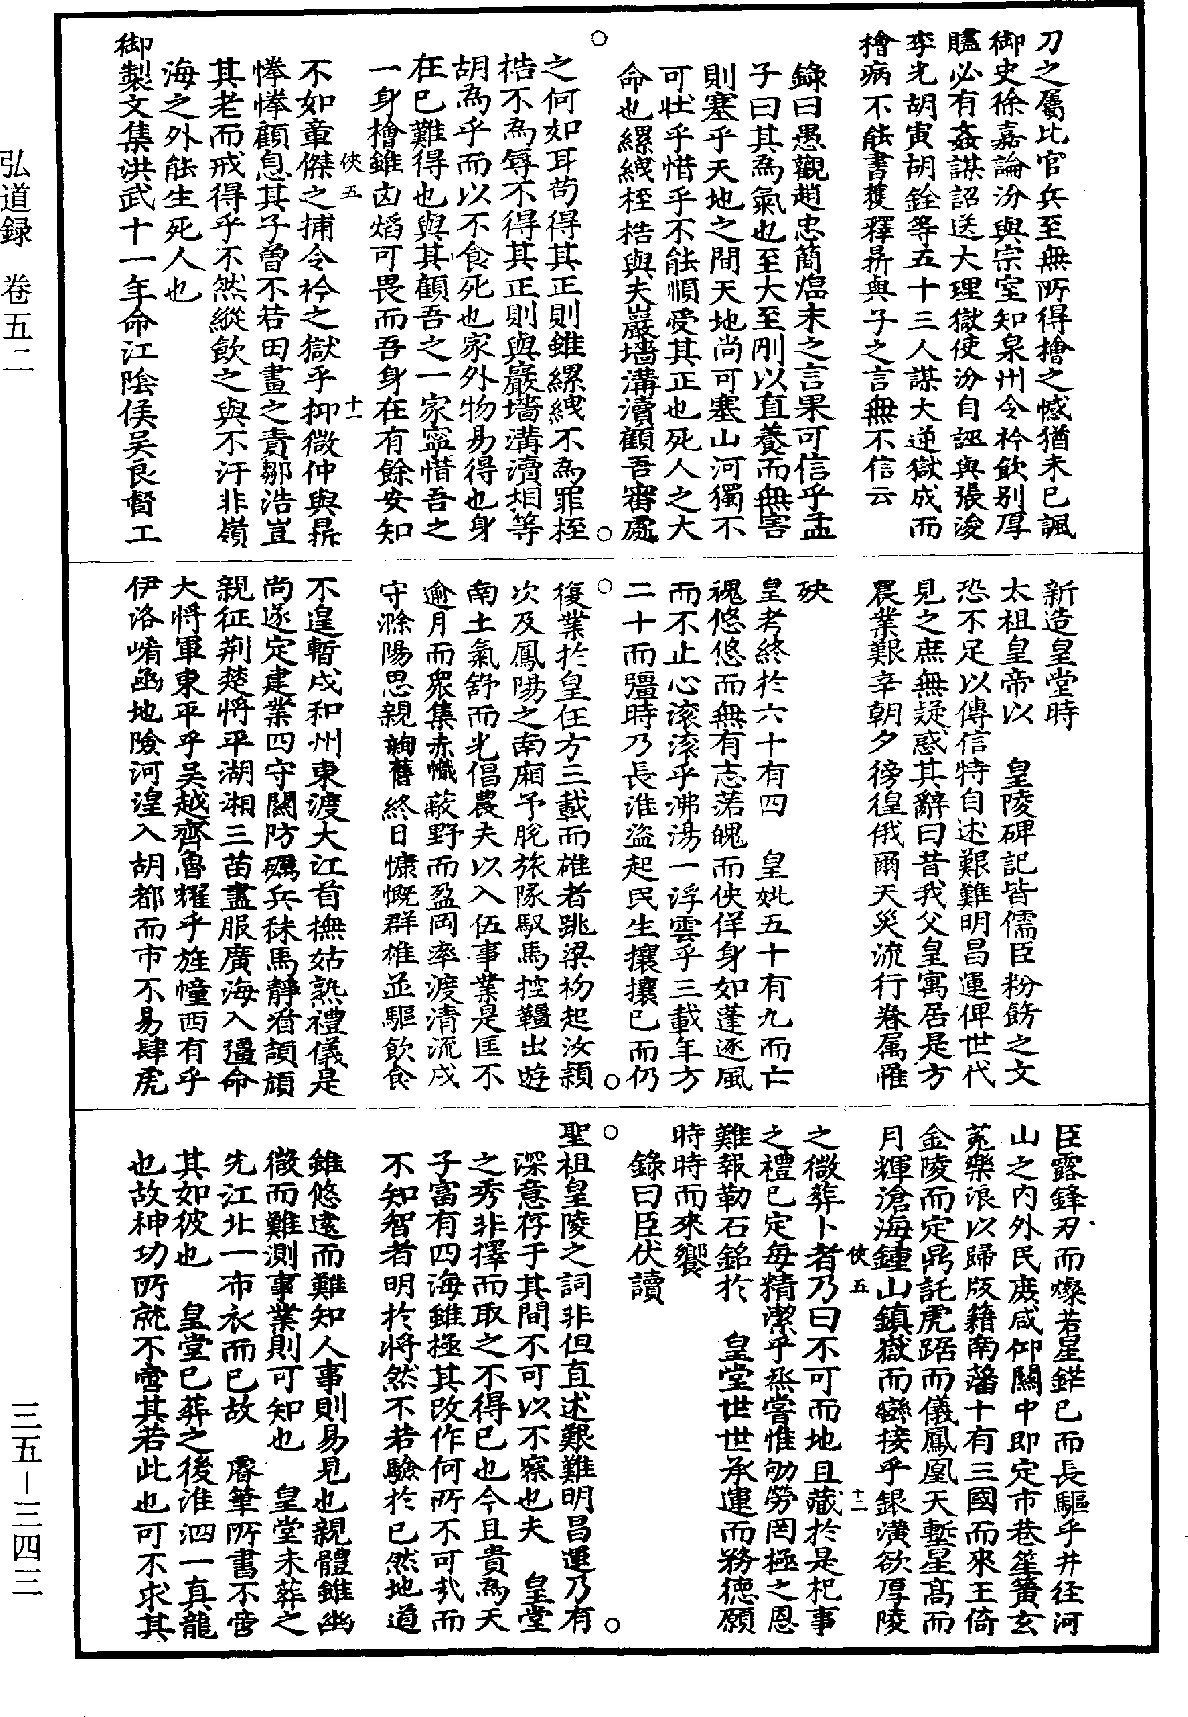 刀之屬比官兵至無所得檜之憾猶未已諷
御史徐嘉論汾與宗室知泉州令衿飲別厚
贐必有姦謀詔送大理獄使汾自誣與張浚
李光胡寅胡銓等五十三人謀大逆獄成而
檜病不能書獲釋昇與子之言無不信云
錄曰愚觀趙忠簡熺末之言果可信乎孟
子曰其為氣也至大至剛以直養而無害
則塞乎天地之間天地尚可塞山河獨不
可壯乎惜乎不能順受其正也死人之大
命也縲絏桎梏與夫巖墻溝瀆顧吾審處
之何如耳苟得其正則雖縲絏不為罪桎
梏不為辱不得其正則與巖墻溝瀆相等
胡為乎而以不食死也家外物易得也身
在己難得也與其顧吾之一家寧惜吾之
一身檜雖凶熖可畏而吾身在有餘安知
俠五
十一
不如章傑之捕令衿之獄乎抑微仲與鼎
惓惓顧息其子曾不若田晝之責鄒浩豈
其老而戒得乎不然縱飲之與不汗非嶺
海之外能生死人也
御製文集洪武十一年命江陰侯吳良督工
新造皇堂時
太祖皇帝以　皇陵碑記皆儒臣粉飾之文
恐不足以傳信特自述艱難明昌運俾世代
見之庶無疑惑其辭曰昔我父皇寓居是方
農業艱辛朝夕徬徨俄爾天災流行眷屬罹
殃
皇考終於六十有四　皇妣五十有九而亡
魂悠悠而無有志落魄而俠佯身如蓬逐風
而不止心滾滾乎沸湯一浮雲乎三載年方
二十而彊時乃長淮盜起民生攘攘已而仍
復業於皇任方三載而雄者跳梁初起汝潁
次及鳳陽之南廂予脫旅隊馭馬控韁出遊
南土氣舒而光倡農夫以入伍事業是匡不
逾月而衆集赤幟蔽野而盈岡率渡清流戍
守滁陽思親詢舊終日慷慨群雄並驅飲食
不遑暫戍和州東渡大江首撫姑熟禮儀是
尚遂定建業四守關防礪兵秣馬靜看頡頏
親征荆楚將平湖湘三苗盡服廣海入疆命
大將軍東平乎吳越齊魯耀乎旌幢西有乎
伊洛崤函地險河湟入胡都而市不易肆虎
臣露鋒刃而燦若星鋩已而長驅乎井徑河
山之內外民庶咸仰關中即定市巷笙簧玄
菟樂浪以歸版籍南藩十有三國而來王倚
金陵而定鼎託虎踞而儀鳳凰天塹星高而
月輝滄海鍾山鎮嶽而巒接乎銀潢欲厚陵
俠五
十二
之微葬卜者乃曰不可而地且藏於是杞事
之禮已定每精潔乎烝嘗惟劬勞罔極之恩
難報勒石銘於　皇堂世世承運而務德願
時時而來饗
錄曰臣伏讀
聖祖皇陵之詞非但直述艱難明昌運乃有
深意存乎其間不可以不察也夫　皇堂
之秀非擇而取之不得已也今且貴為天
子富有四海雖極其改作何所不可哉而
不知智者明於將然不若驗於已然地道
雖悠遠而難知人事則易見也親體雖幽
微而難測事業則可知也　皇堂未葬之
先江北一布衣而已故　睿筆所書不啻
其如彼也　皇堂已葬之後淮泗一真龍
也故神功所就不啻其若此也可不求其
弘道録　卷五二
三五－三四三